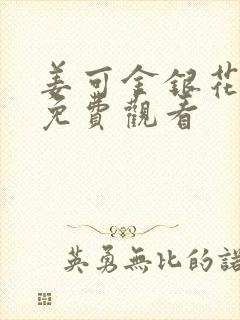 姜可金銀花
免費觀看
英勇無比的諾